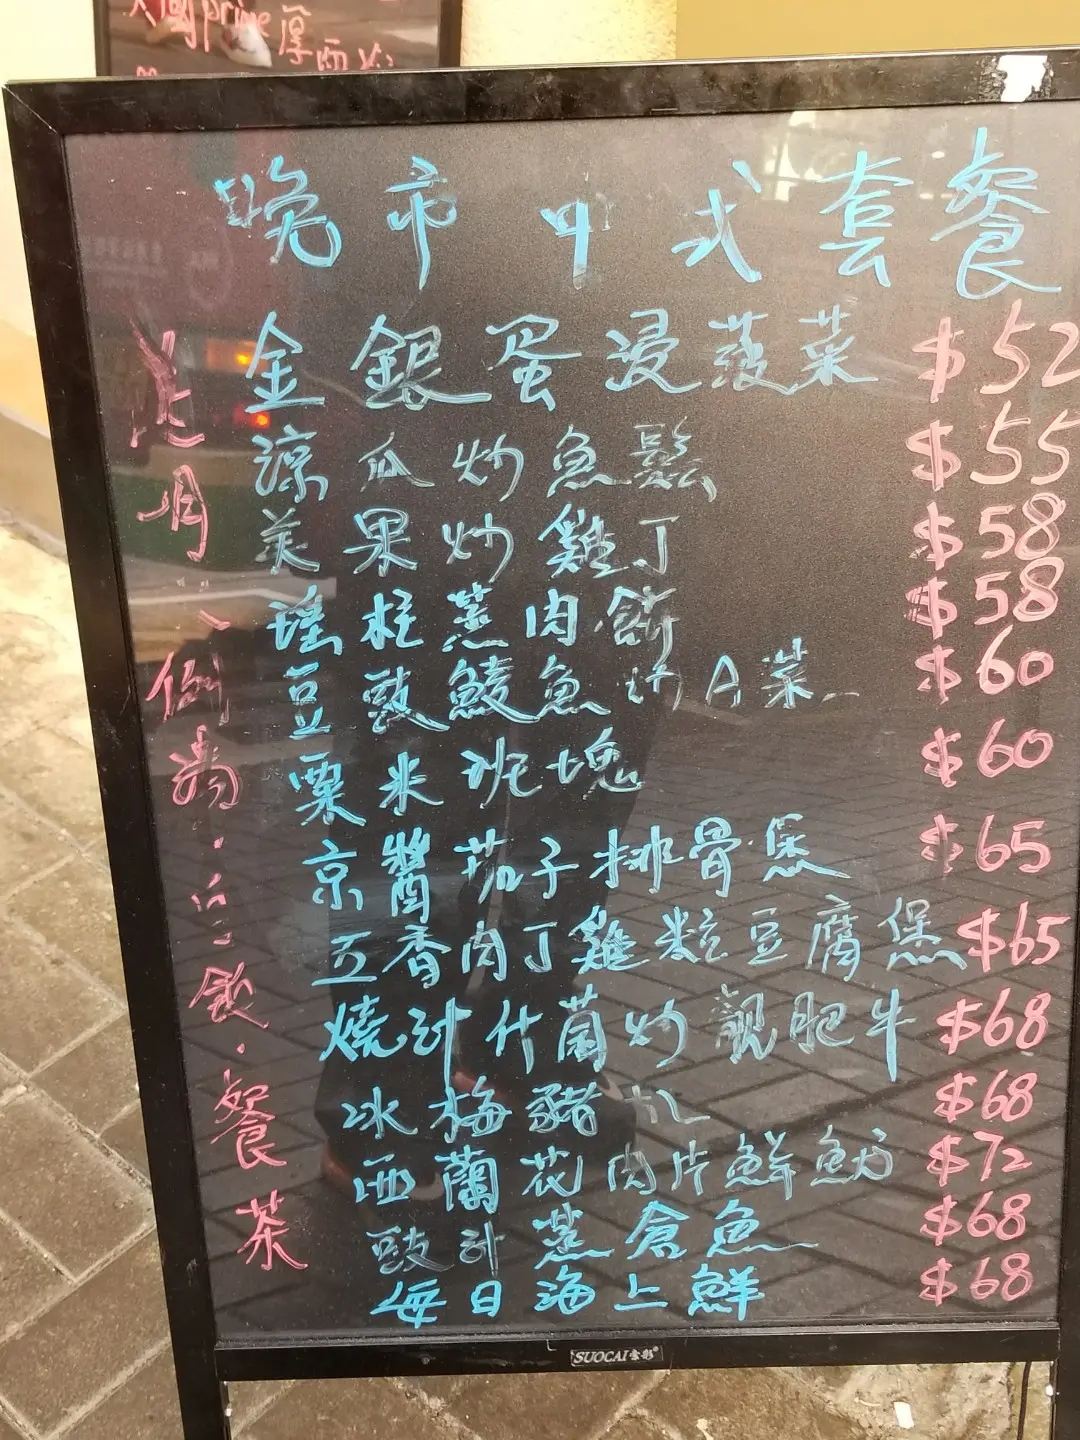 美國prime厚
晚市中式套餐
金銀蛋浸菠菜 $52
涼瓜炒魚鬆 $55
芙果炒雞丁 $58
瑤柱蒸肉餅 $58
豆豉鯪魚 A菜 $60
粟米班塊 $60
京醬茄子排骨煲 $65
五香肉丁雞粒豆腐煲 $65
燒汁什菌炒靚肥牛 $68
冰梅豬 $68
西蘭花肉片鮮魷 $72
豉汁蒸倉魚 $68
每日海上鮮 $68
例湯.白飯.餐茶
SUOCAI索彩